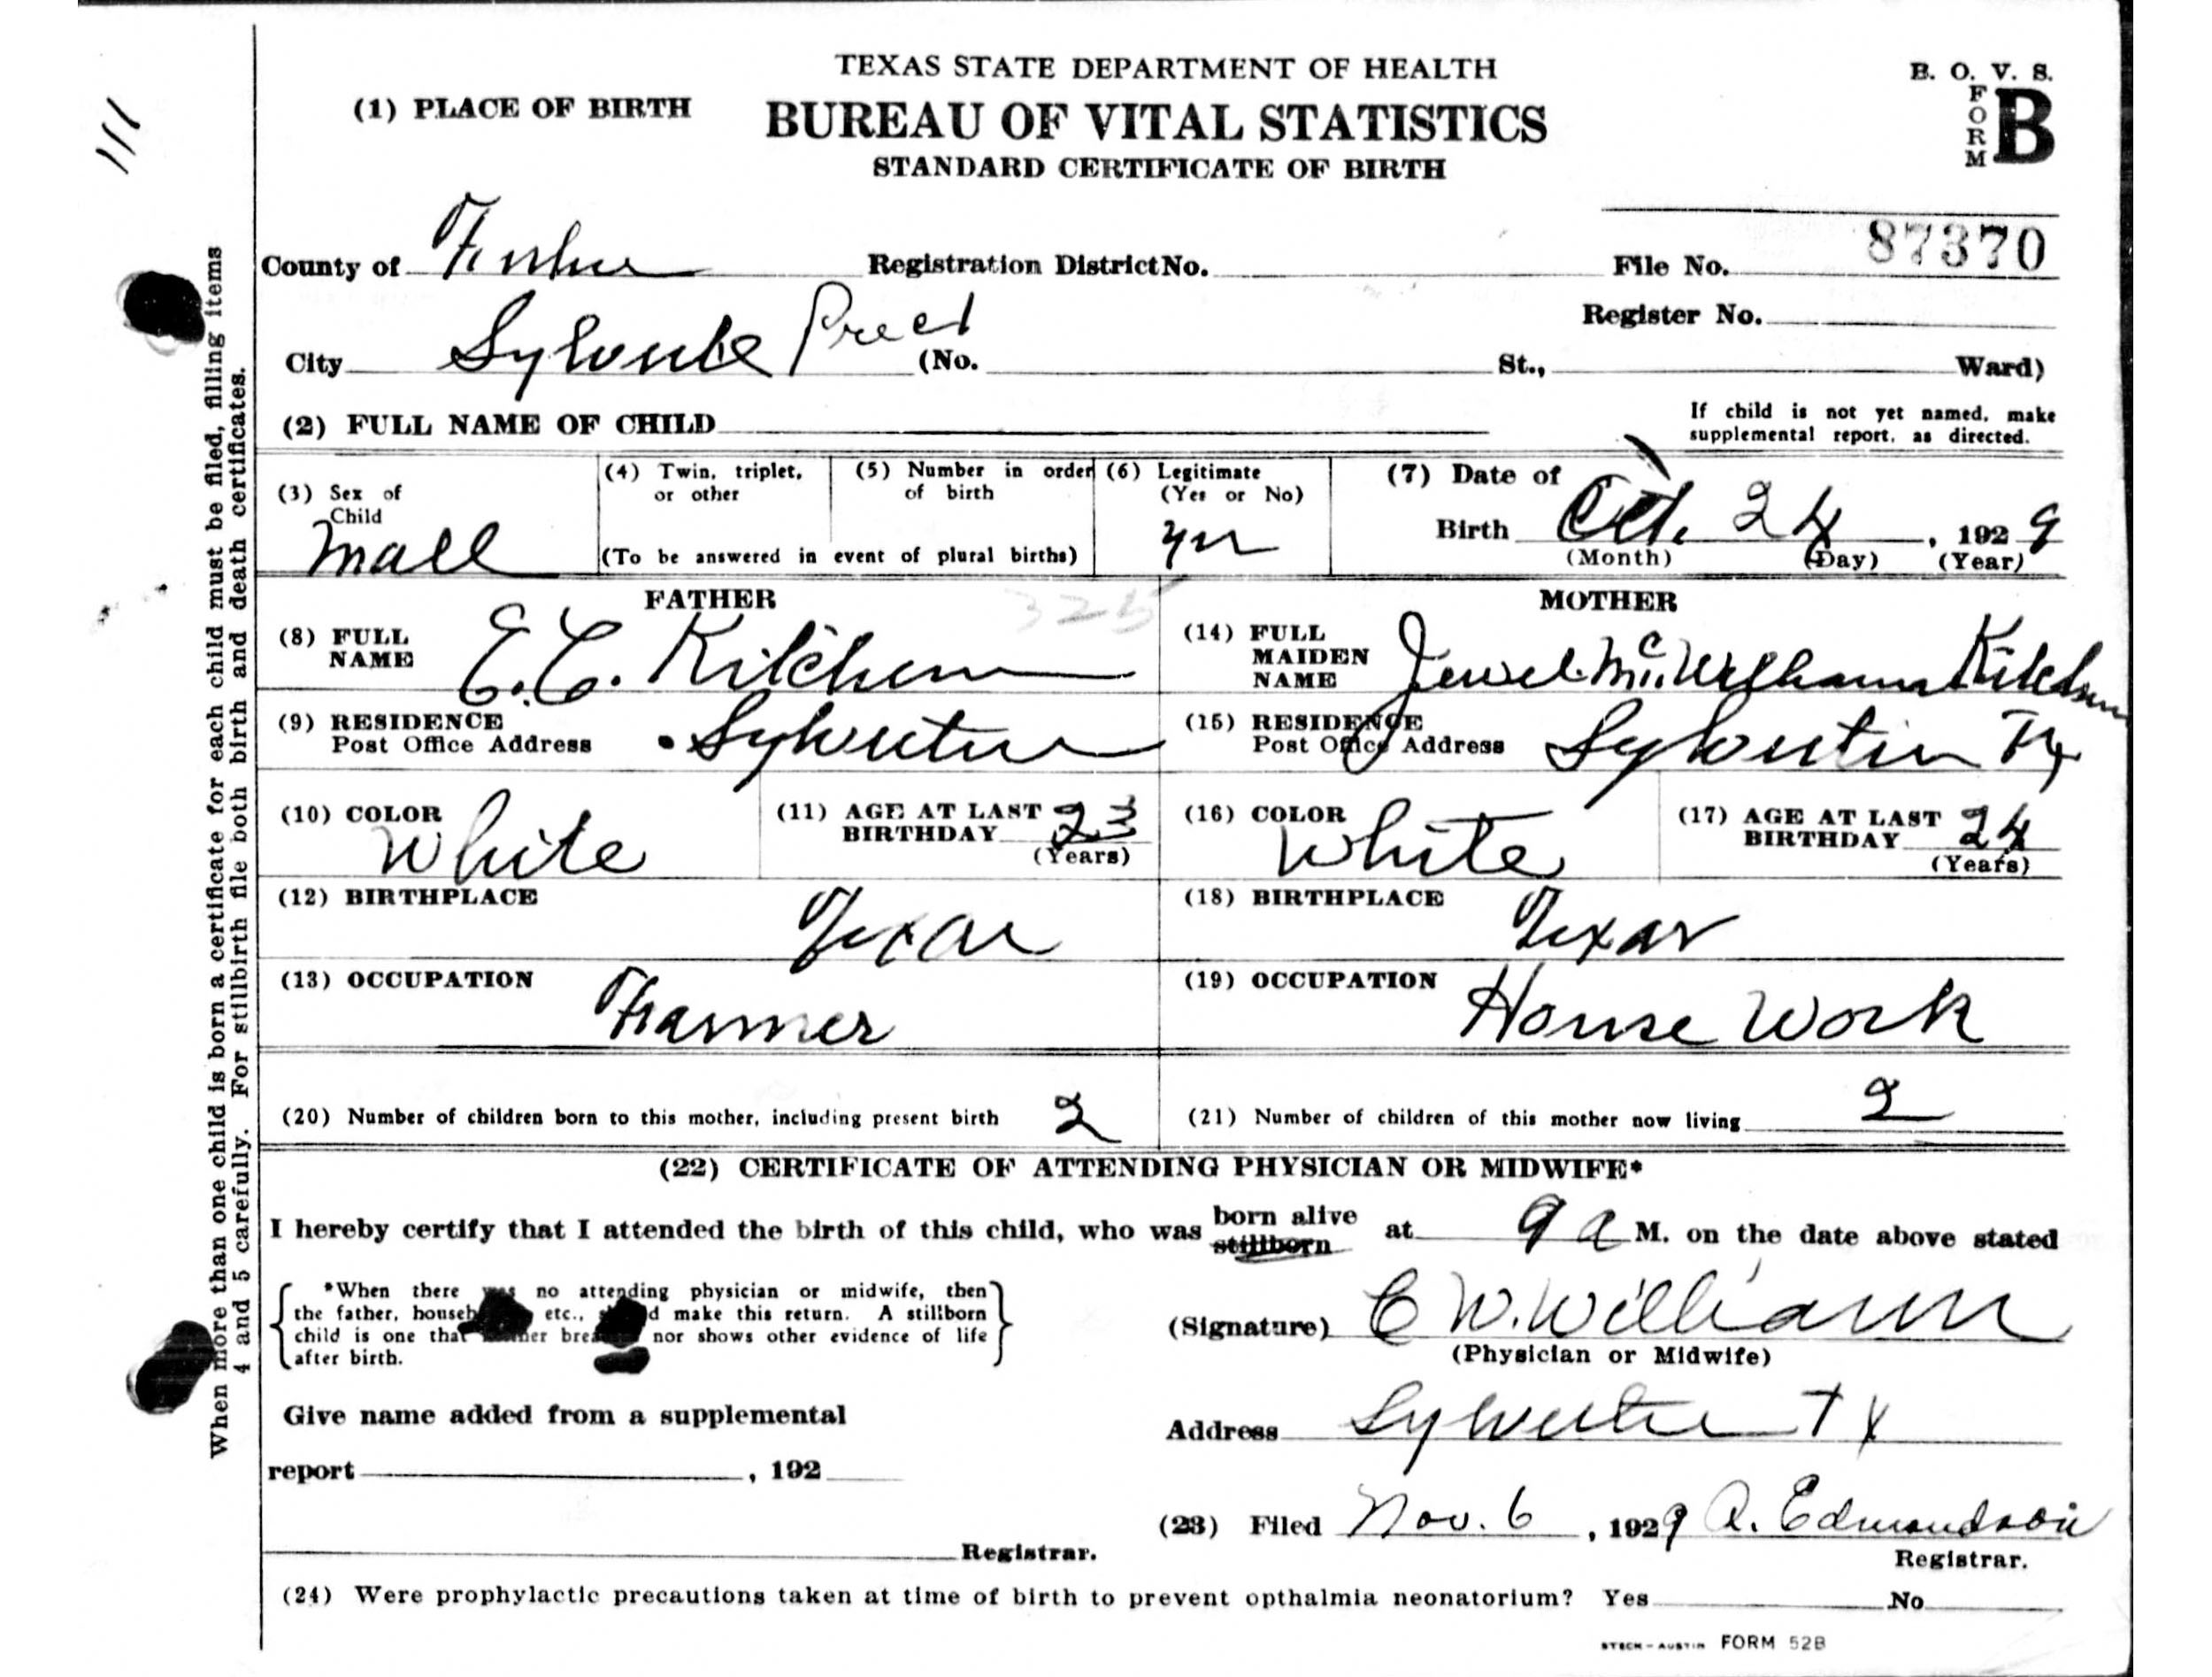 111
TEXAS STATE DEPARTMENT OF HEALTH
B. O. V. S.
(1) PLACE OF BIRTH
BUREAU OF VITAL STATISTICS
FORM B
STANDARD CERTIFICATE OF BIRTH
County of Fisher Registration District No. File No. 87370
Register No.
City Sylvester Prect (No. St., Ward)
(2) FULL NAME OF CHILD
If child is not yet named, make
supplemental report, as directed.
(3) Sex of Child Male
(4) Twin, triplet, or other
(5) Number in order of birth
(To be answered in event of plural births)
(6) Legitimate (Yes or No) yes
(7) Date of Birth Oct. 24, 1929
(Month) (Day) (Year)
FATHER
325
(8) FULL NAME E. C. Kitchen
(9) RESIDENCE Post Office Address Sylvester
(10) COLOR White
(11) AGE AT LAST BIRTHDAY 23 (Years)
(12) BIRTHPLACE Texas
(13) OCCUPATION Farmer
MOTHER
(14) FULL MAIDEN NAME Jewel McWilliams Kitchen
(15) RESIDENCE Post Office Address Sylvester Tx
(16) COLOR White
(17) AGE AT LAST BIRTHDAY 24 (Years)
(18) BIRTHPLACE Texas
(19) OCCUPATION House Work
(20) Number of children born to this mother, including present birth 2
(21) Number of children of this mother now living 2
(22) CERTIFICATE OF ATTENDING PHYSICIAN OR MIDWIFE*
I hereby certify that I attended the birth of this child, who was born alive stillborn at 9 a M. on the date above stated
*When there was no attending physician or midwife, then
the father, etc., make this return. A stillborn
child is one that nor shows other evidence of life
after birth.
(Signature) C W. Williams
(Physician or Midwife)
Give name added from a supplemental
Address Sylvester Tx
report , 192
(23) Filed Nov. 6, 1929 A. Edmondson
Registrar.
Registrar.
(24) Were prophylactic precautions taken at time of birth to prevent opthalmia neonatorium? Yes No
STECK-AUSTIN FORM 52B
When more than one child is born a certificate for each child must be filed, filling items
4 and 5 carefully. For stillbirth file both birth and death certificates.